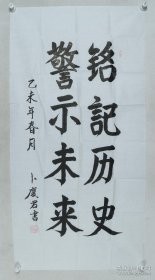 铭記历史
警示未来
乙未年春月
卜慶君書